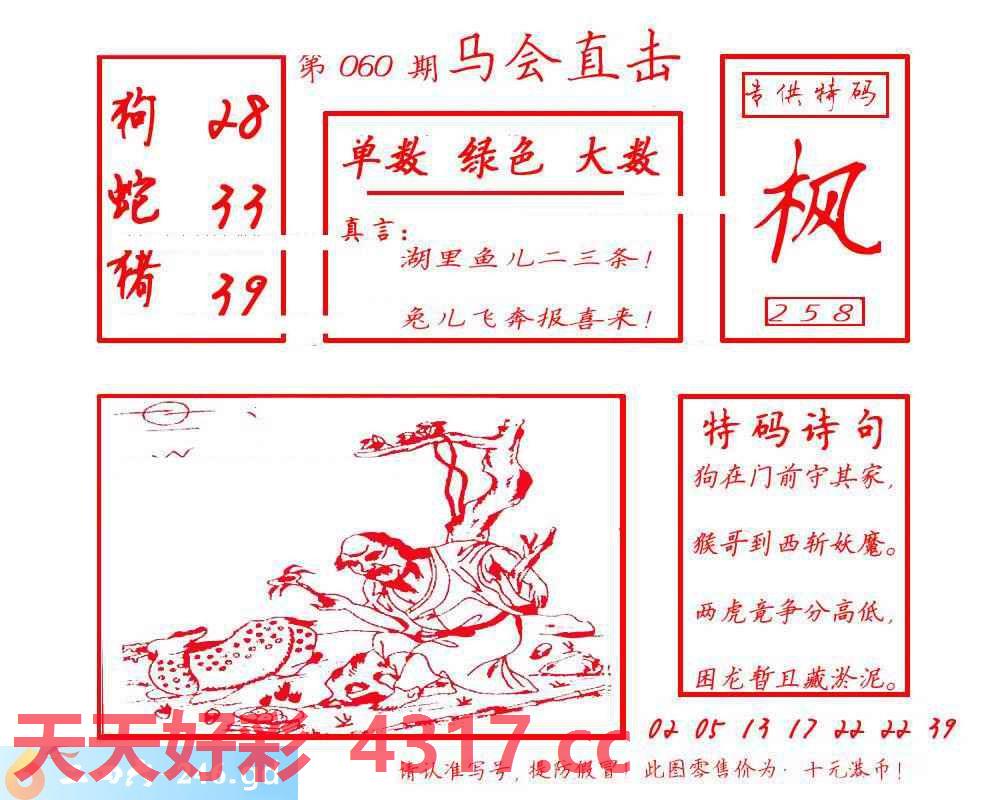 第 060 期 马会直击
狗 28
蛇 33
猪 39
单数 绿色 大数
真言：
湖里鱼儿二三条！
兔儿飞奔报喜来！
专供特码
枫
258
特码诗句
狗在门前守其家，
猴哥到西斩妖魔。
两虎竟争分高低，
困龙暂且藏淤泥。
02 05 13 17 22 22 39
天天好彩 4317.cc
246.gd
请认准写号，提防假冒！此图零售价为：十元港币！